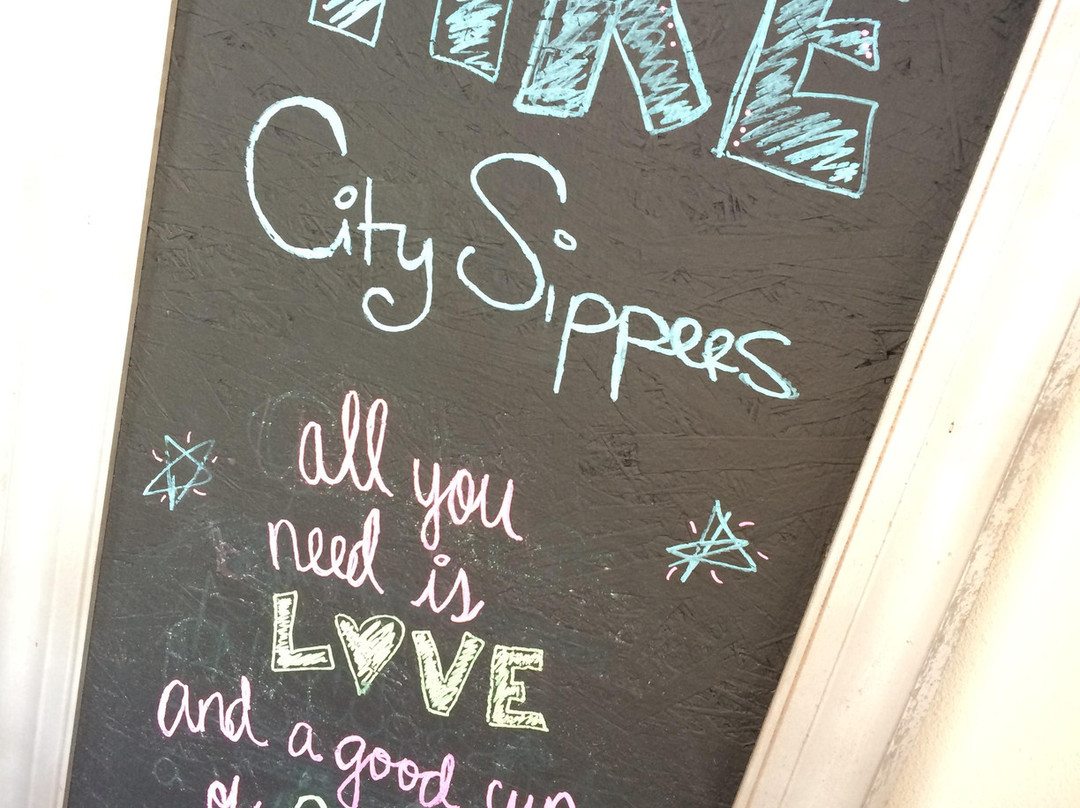 City Sippers
all you
need is
LOVE
and a good cup
of